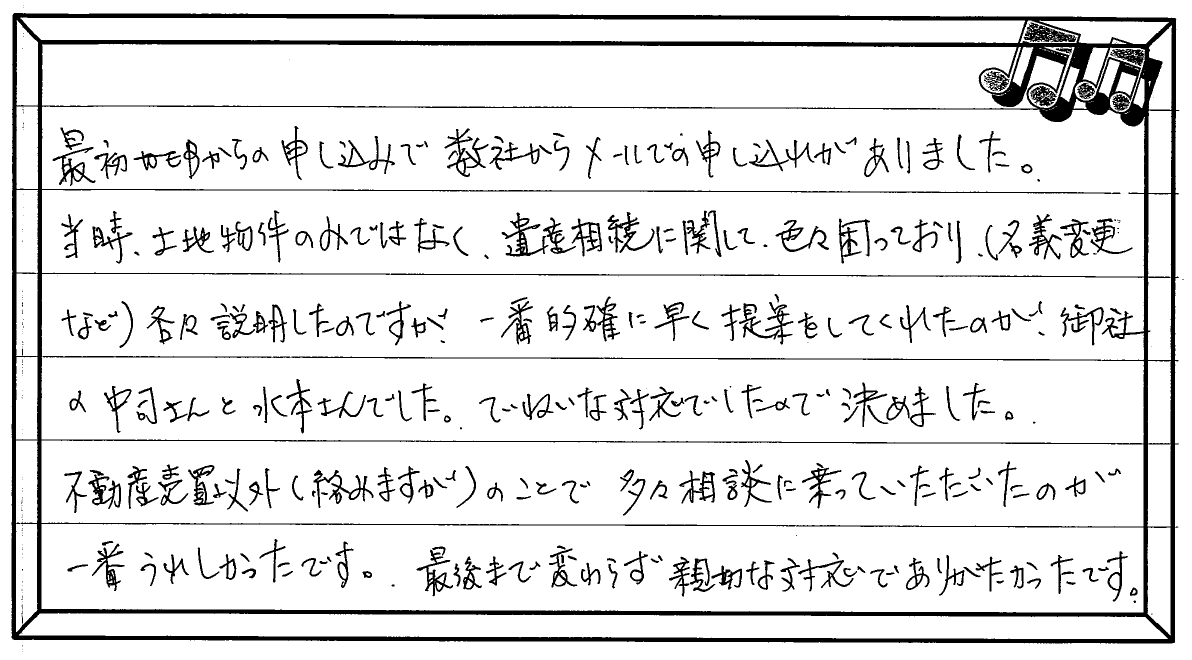 最初WEBからの申し込みで数社からメールでの申し込れがありました。
当時、土地物件のみではなく、遺産相続に関して、色々困っており、(名義変更
など)各々説明したのですが、一番的確に早く提案をしてくれたのが、御社
の中司さんと水本さんでした。ていねいな対応でしたので決めました。
不動産売買以外(絡みますが)のことで多々相談に乗っていただいたのが
一番うれしかったです。最後まで変わらず親切な対応でありがたかったです。